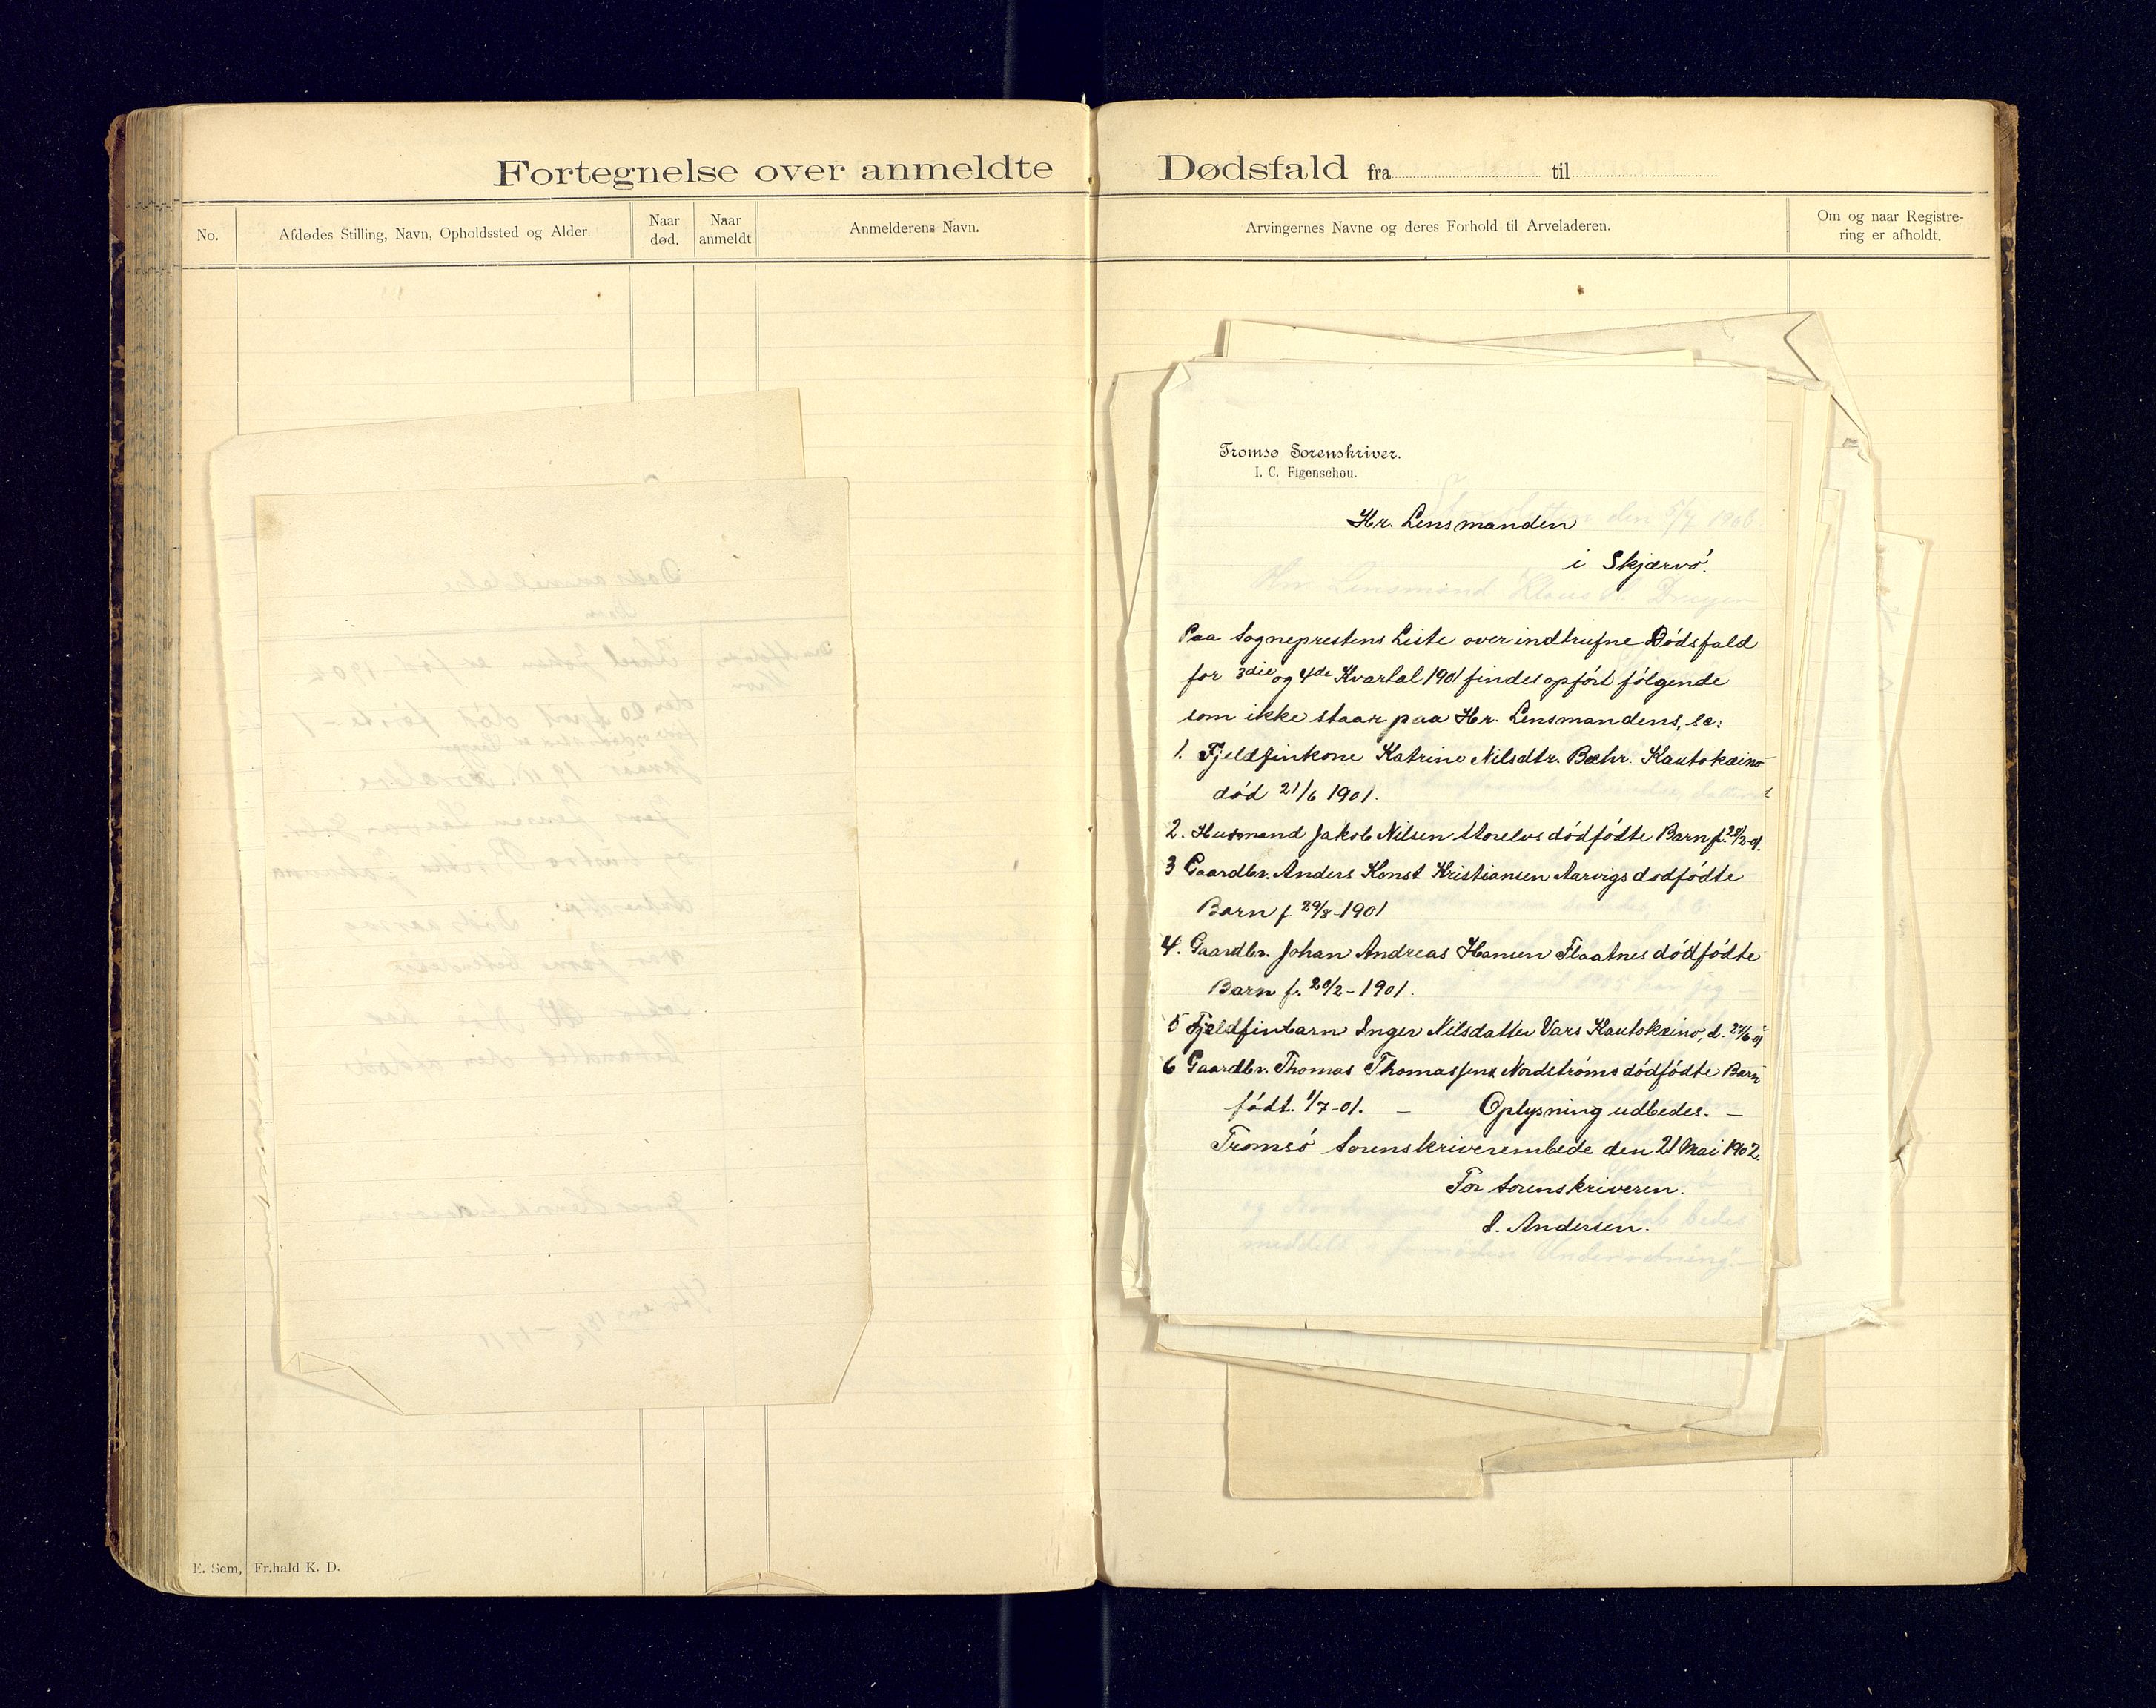 Fortegnelse over anmeldte Dødsfald fra til
No.
Afdødes Stilling, Navn, Opholdssted og Alder.
Naar død.
Naar anmeldt
Anmelderens Navn.
Arvingernes Navne og deres Forhold til Arveladeren.
Om og naar Registre-
ring er afholdt.
Tromsø Sorenskriver.
I. C. Figenschou.
Hr. Lensmanden
i Skjærvó.
Paa Sogneprestens Liste over indtrufne Dódsfald
for 3die og 4de Kvartal 1901 findes opfórt fólgende
som ikke staar paa Hr. Lensmandens, sc:
1. Fjeldfinkone Katrine Nilsdtr. Bæhr. Kautokæino
dód 21/6 1901.
2. Husmand Jakob Nilsen Storelvs dódfódte Barn f. 28/2-01.
3 Gaardbr. Anders Konst Kristiansen Aarvigs dodfódte
Barn f. 29/8-1901
4. Gaardbr. Johan Andreas Hansen Flaatnes dódfódte
Barn f. 20/2-1901.
5 Fjeldfinbarn Inger Nilsdatter Vars Kautokæino, d. 27/6-01
6 Gaardbr. Thomas Thomassens Nordstróms dódfódte Barn
fódt. 1/7-01. — Oplysning udbedes. —
Tromsó Sorenskriverembede den 21 Mai 1902.
For Sorenskriveren.
S. Andersen.
E. Sem, Fr.hald K. D.